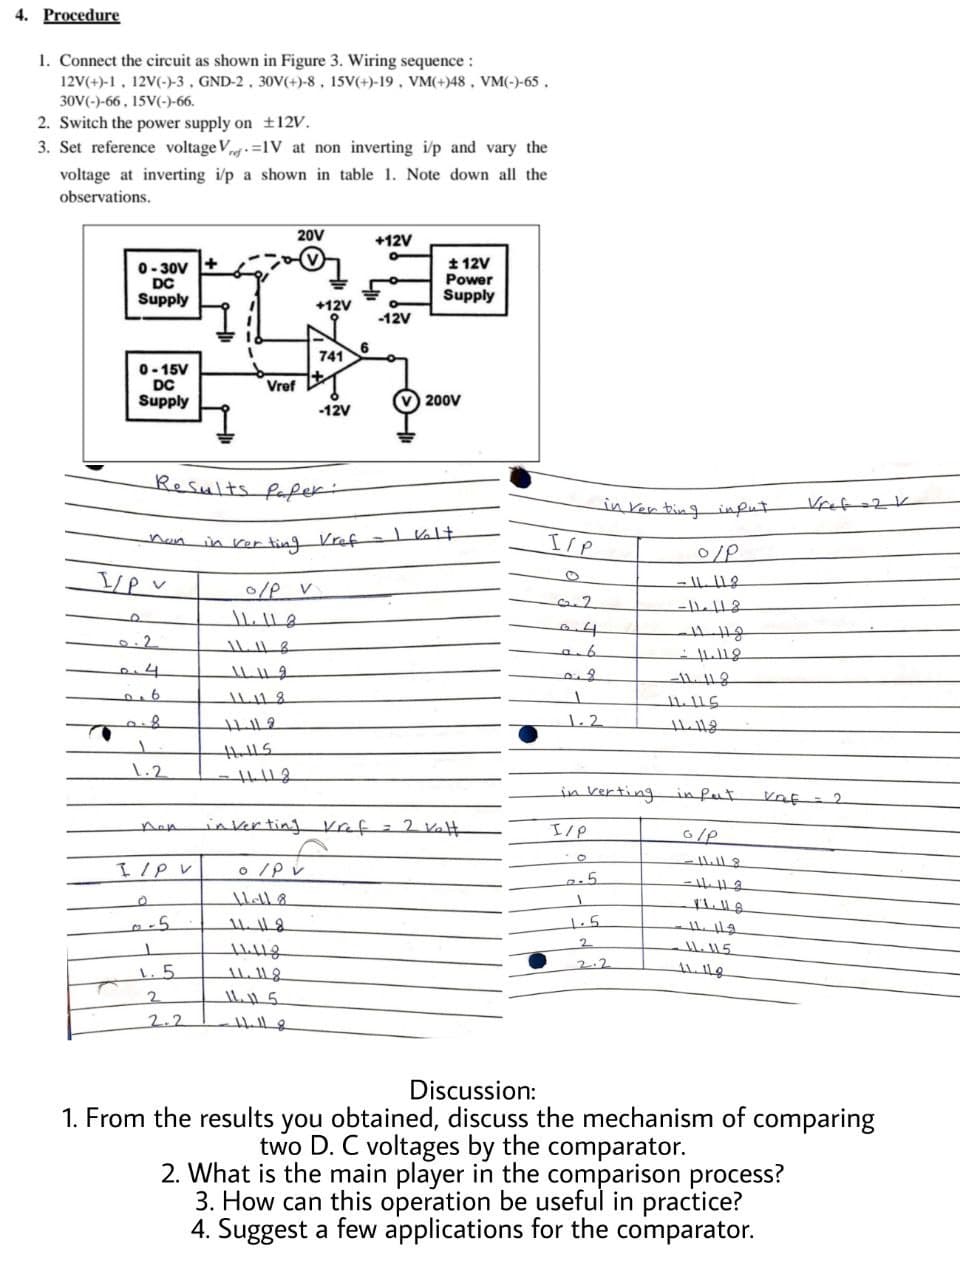 4. Procedure
1. Connect the circuit as shown in Figure 3. Wiring sequence :
12V(+)-1 , 12V(-)-3 , GND-2 , 30V(+)-8 , 15V(+)-19 , VM(+)48 , VM(-)-65 ,
30V(-)-66 , 15V(-)-66.
2. Switch the power supply on ±12V.
3. Set reference voltage Vref.=1V at non inverting i/p and vary the
voltage at inverting i/p a shown in table 1. Note down all the
observations.
20V
+12V
0 - 30V
DC
Supply
+
V
± 12V
Power
Supply
+12V
-12V
−
741
6
+
0 - 15V
DC
Supply
Vref
-12V
V
200V
Results Paper:
non in verting Vref = 1 Volt
I/P v o/P v
0 11.118
0.2 11.118
0.4 11.118
0.6 11.118
0.8 11.118
1 11.115
1.2 -11.118
non inverting Vref = 2 Volt
I/P v o/P v
0 11.118
0.5 11.118
1 11.118
1.5 11.118
2 11.115
2.2 -11.118
inverting input Vref =2 V
I/P o/P
0 -11.118
0.2 -11.118
0.4 -11.118
0.6 -11.118
0.8 -11.118
1 11.115
1.2 11.118
inverting input Vref = 2
I/P o/P
0 -11.118
0.5 -11.118
1 -11.118
1.5 -11.118
2 -11.115
2.2 11.118
Discussion:
1. From the results you obtained, discuss the mechanism of comparing
two D. C voltages by the comparator.
2. What is the main player in the comparison process?
3. How can this operation be useful in practice?
4. Suggest a few applications for the comparator.